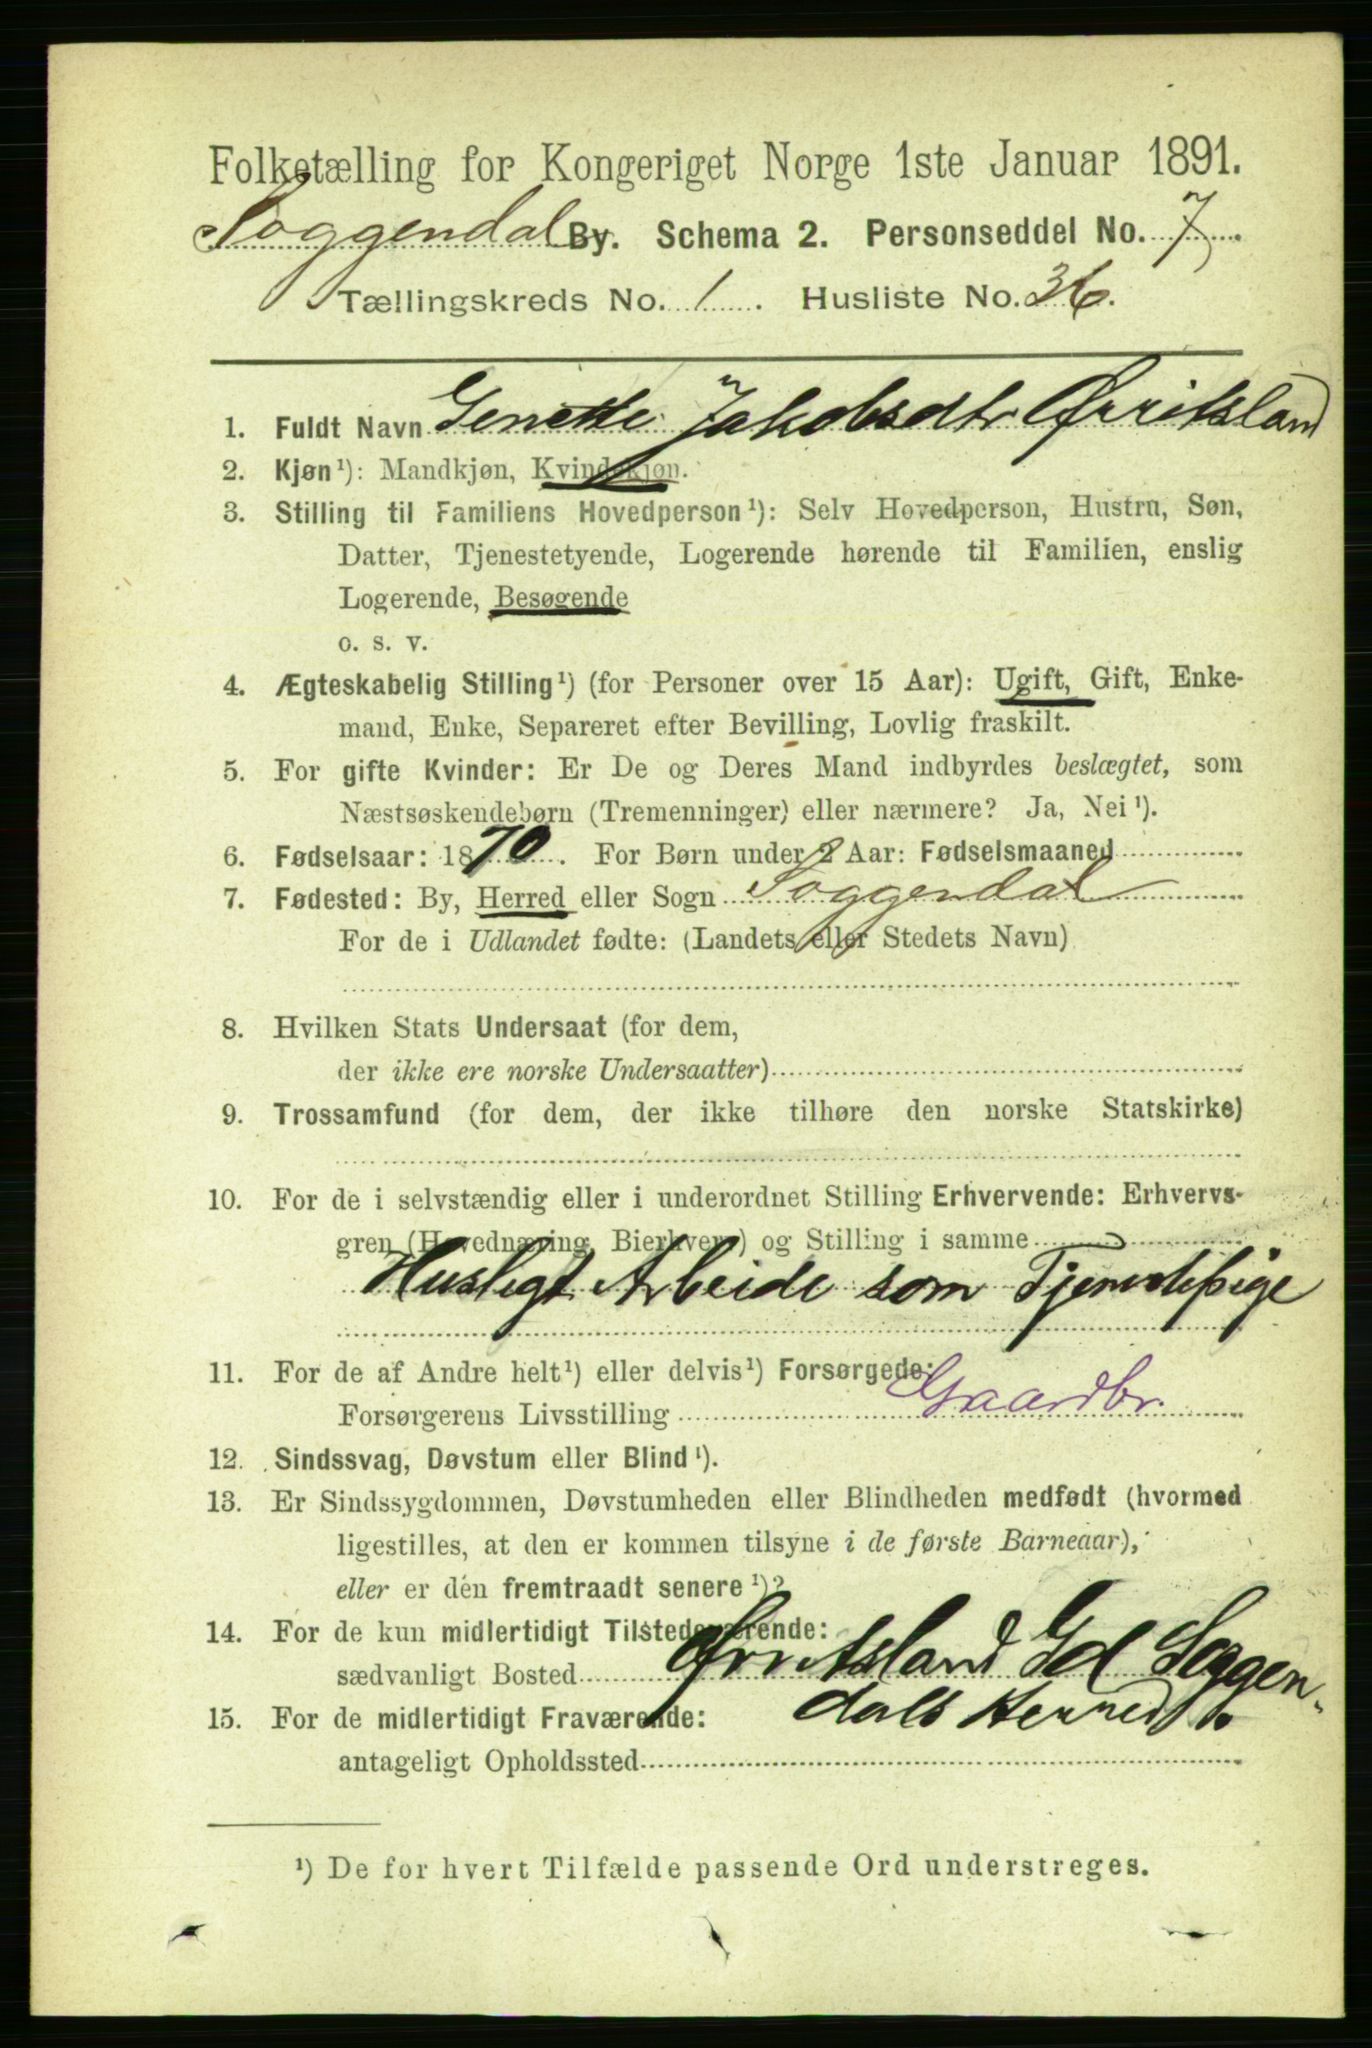 Folketælling for Kongeriget Norge 1ste Januar 1891.
Soggendal By. Schema 2. Personseddel No. 7
Tællingskreds No. 1. Husliste No. 36.
1. Fuldt Navn Genette Jakobsdtr Ørritsland
2. Kjøn¹): Mandkjøn, Kvindekjøn.
3. Stilling til Familiens Hovedperson¹): Selv Hovedperson, Hustru, Søn,
Datter, Tjenestetyende, Logerende hørende til Familien, enslig
Logerende, Besøgende
o. s. v.
4. Ægteskabelig Stilling¹) (for Personer over 15 Aar): Ugift, Gift, Enke-
mand, Enke, Separeret efter Bevilling, Lovlig fraskilt.
5. For gifte Kvinder: Er De og Deres Mand indbyrdes beslægtet, som
Næstsøskendebørn (Tremenninger) eller nærmere? Ja, Nei¹).
6. Fødselsaar: 1870. For Børn under 2 Aar: Fødselsmaaned
7. Fødested: By, Herred eller Sogn Soggendal
For de i Udlandet fødte: (Landets eller Stedets Navn)
8. Hvilken Stats Undersaat (for dem,
der ikke ere norske Undersaatter)
9. Trossamfund (for dem, der ikke tilhøre den norske Statskirke)
10. For de i selvstændig eller i underordnet Stilling Erhvervende: Erhvervs-
gren (Hovednæring, Bierhverv) og Stilling i samme
Husligt Arbeide som Tjenestepige
11. For de af Andre helt¹) eller delvis¹) Forsørgede:
Forsørgerens Livsstilling Gaardbr.
12. Sindssvag, Døvstum eller Blind¹).
13. Er Sindssygdommen, Døvstumheden eller Blindheden medfødt (hvormed
ligestilles, at den er kommen tilsyne i de første Barneaar),
eller er den fremtraadt senere¹)?
14. For de kun midlertidigt Tilstedeværende:
sædvanligt Bosted Ørritsland Gd Soggen-
dals Herred.
15. For de midlertidigt Fraværende:
antageligt Opholdssted
¹) De for hvert Tilfælde passende Ord understreges.